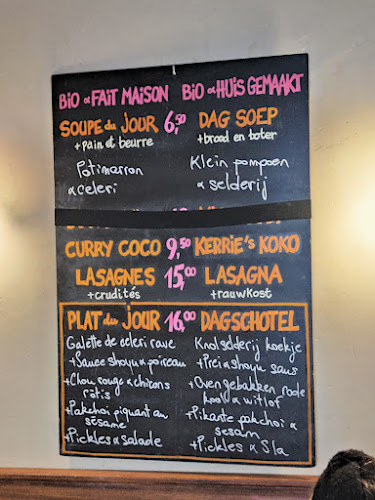 BIO & FAIT MAISON BIO & HUIS GEMAAKT
SOUPE du JOUR 6,50 DAG SOEP
+pain et beurre +brood en boter
Potimarron Klein pompoen
& celeri & selderij
CURRY COCO 9,50 KERRIE's KOKO
LASAGNES 15,00 LASAGNA
+crudités +rauwkost
PLAT du JOUR 16,00 DAGSCHOTEL
Galette de celeri rave Knolselderij koekje
+Sauce shoyu & poireau +Prei & shoyu saus
+Chou rouge & chicons +Oven gebakken rode
rôtis kool & witlof
+Pakchoi piquant au +Pikante pakchoi &
sésame sesam
+Pickles & salade +Pickles & Sla